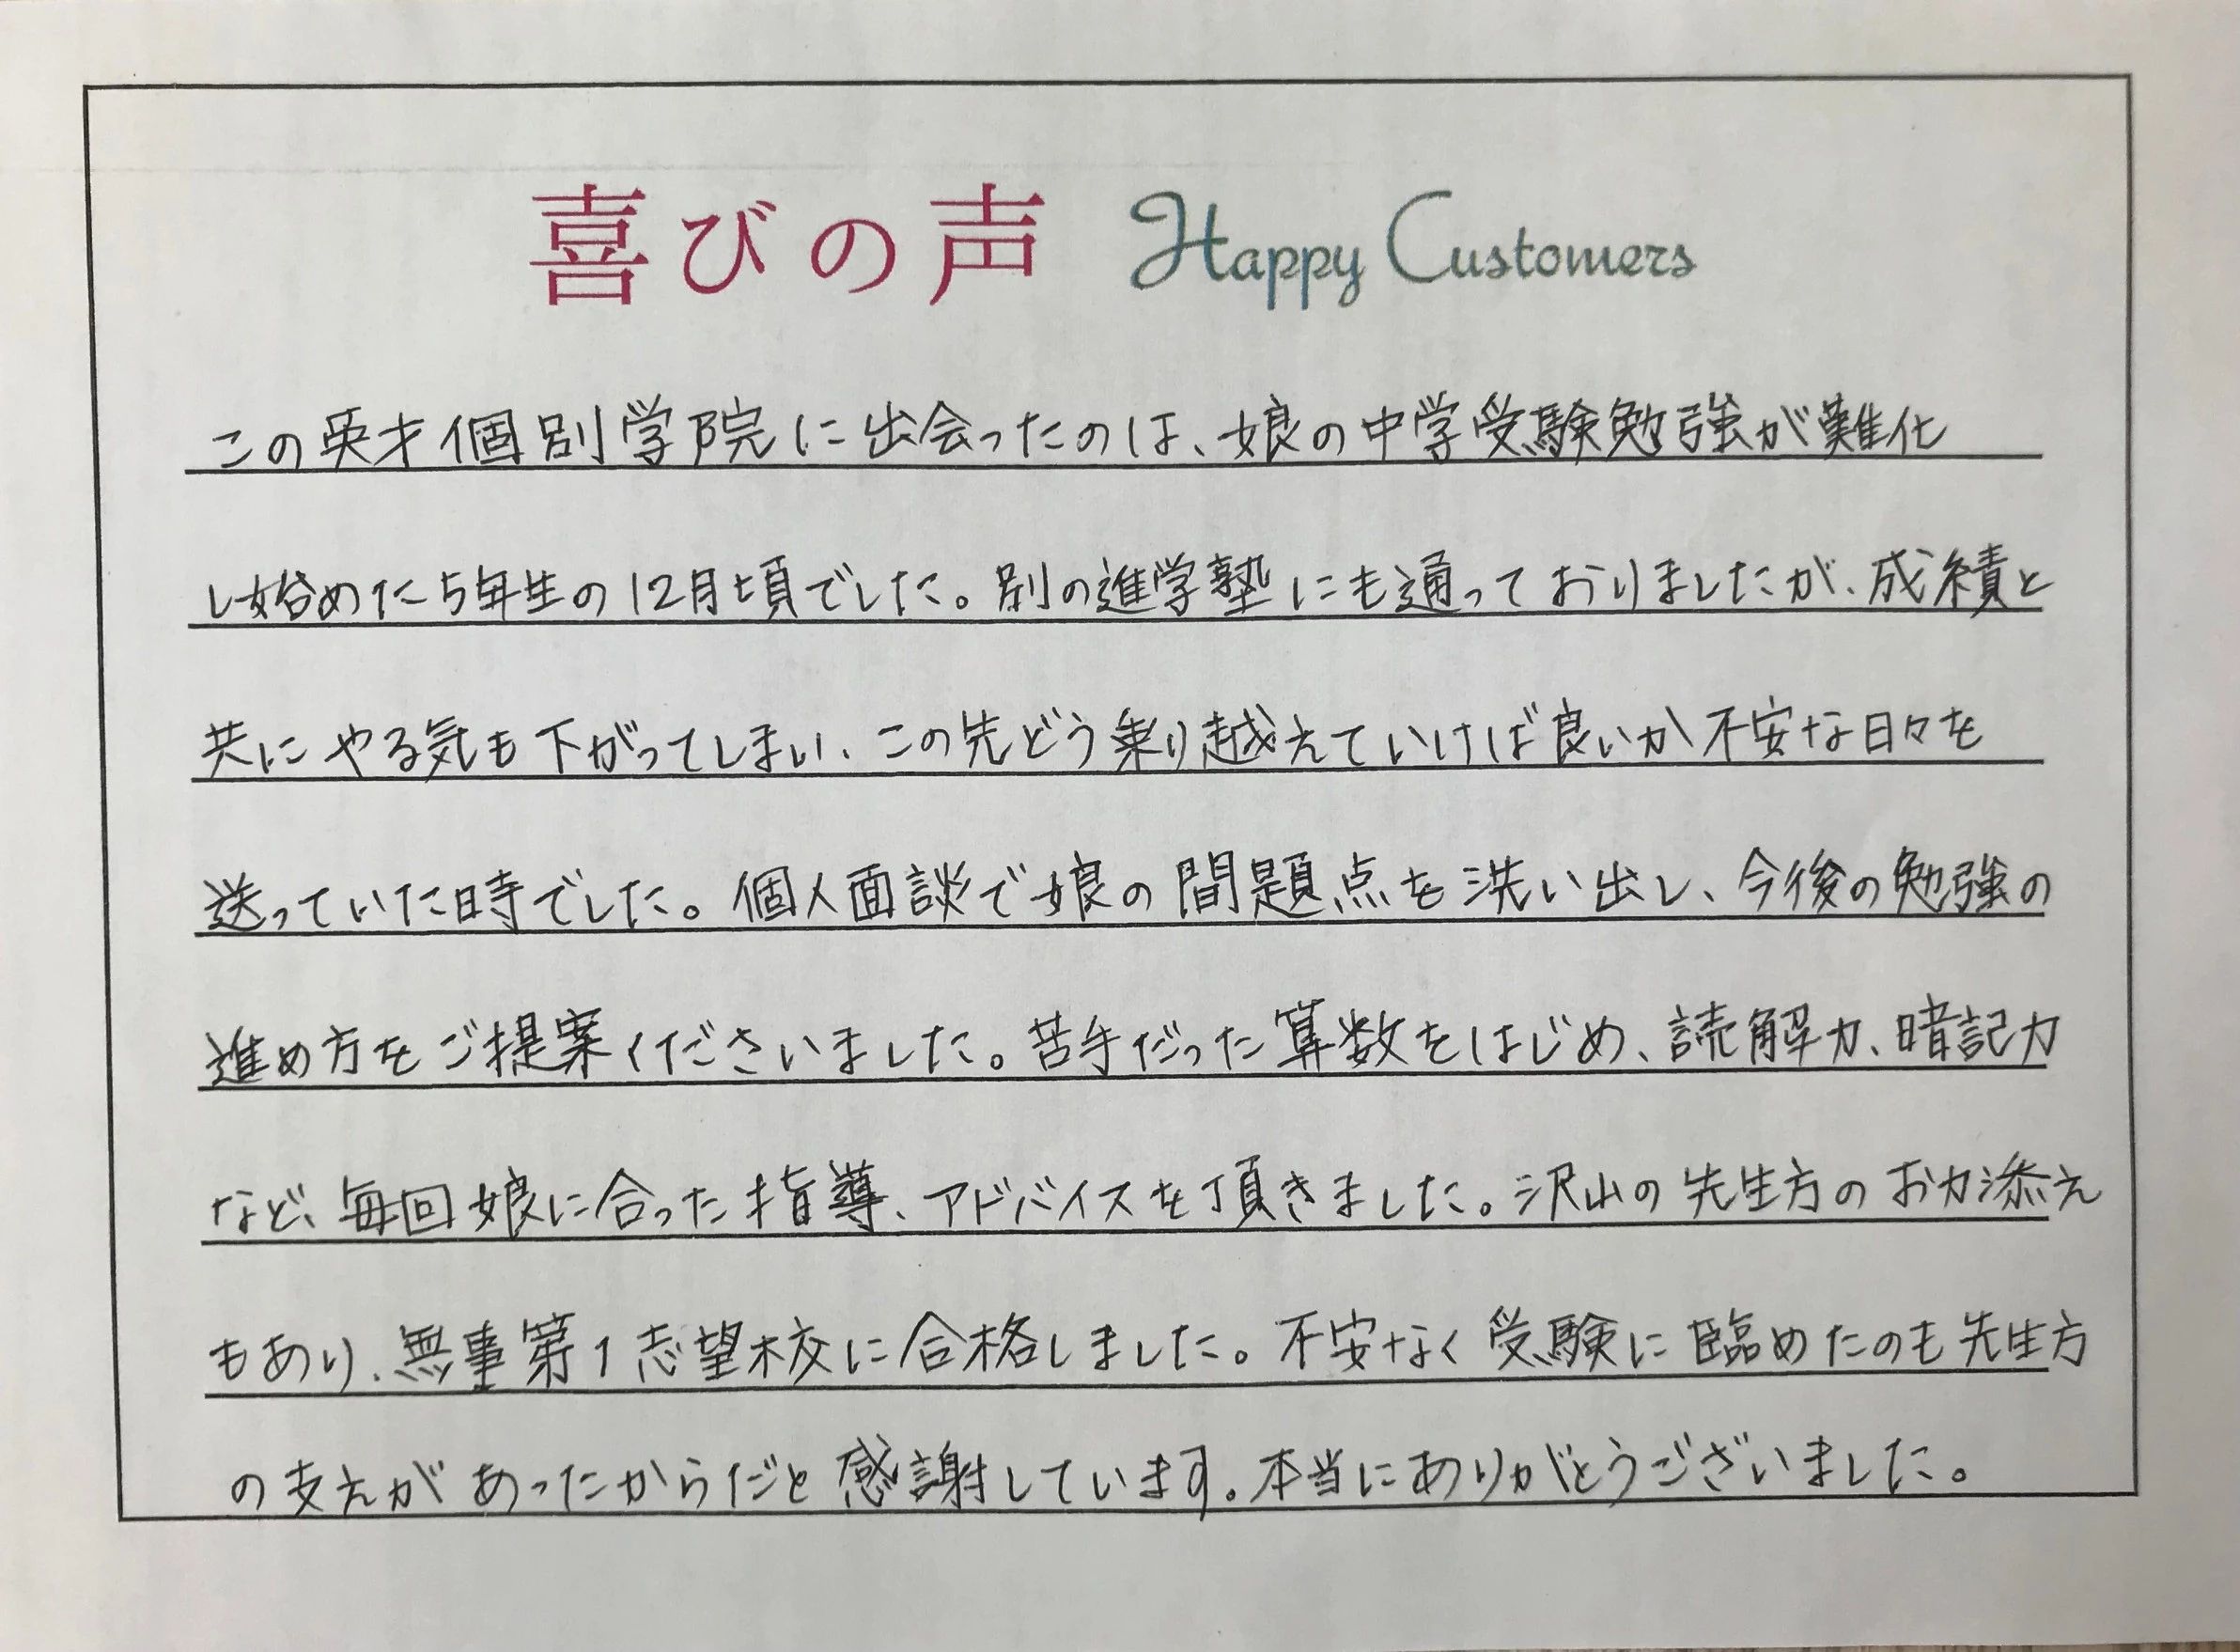 喜びの声 Happy Customers
この英才個別学院に出会ったのは、娘の中学受験勉強が難化
し始めた5年生の12月頃でした。別の進学塾にも通っておりましたが、成績と
共にやる気も下がってしまい、この先どう乗り越えていけば良いか不安な日々を
送っていた時でした。個人面談で娘の問題点を洗い出し、今後の勉強の
進め方をご提案くださいました。苦手だった算数をはじめ、読解力、暗記力
など、毎回娘に合った指導、アドバイスを頂きました。沢山の先生方のお力添え
もあり、無事第1志望校に合格しました。不安なく受験に臨めたのも先生方
の支えがあったからだと感謝しています。本当にありがとうございました。